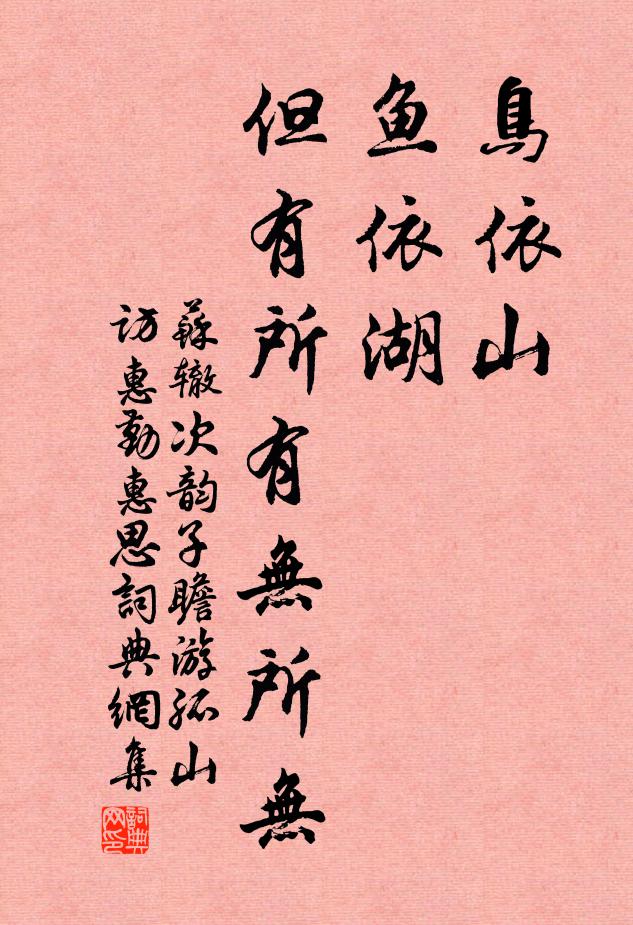 鳥依山
鱼依湖
但有所有無所無
蘇辙次韵子瞻游孤山
访惠勤惠思詞典網集
詞典
网印